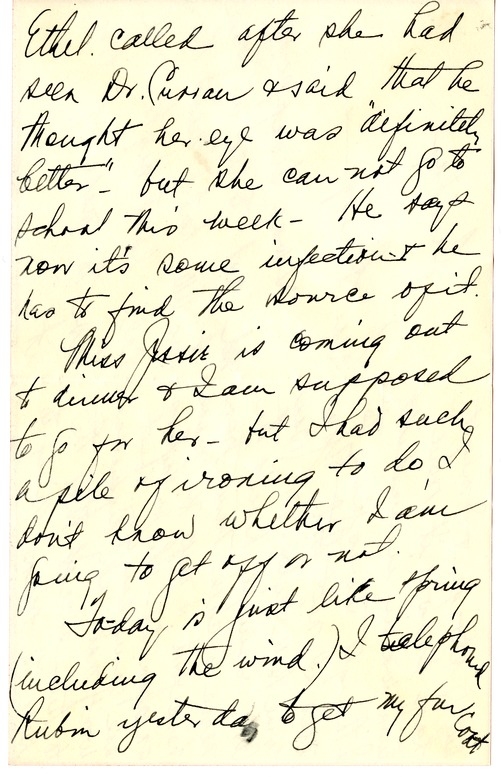 Ethel called after she had
seen Dr. Curran & said that he
thought her eye was "definitely
better" - but she can not go to
school this week - He says
now it's some infection & he
has to find the source of it.
Miss Jessie is coming out
to dinner & I am supposed
to go for her - but I had such
a pile of ironing to do I
don't know whether I am
going to get off or not.
To-day is just like spring
(including the wind.) I telephoned
Rubin yesterday to get my fur coat